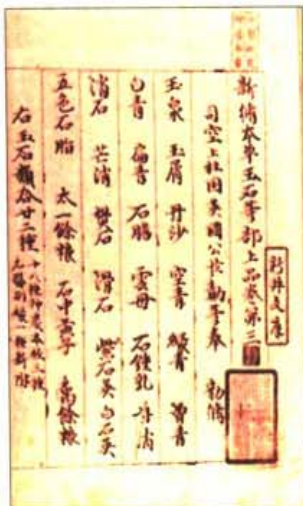 新修本草玉石等部上品卷第三
司空上柱國英國公臣勣等奉 勅脩
玉泉 玉屑 丹沙 空青 綠青 曾青
白青 扁青 石膽 雲母 石鍾乳 朴消
消石 芒消 礬石 滑石 紫石英 白石英
五色石脂 太一餘粮 石中黃子 禹餘粮
右玉石類合廿二種